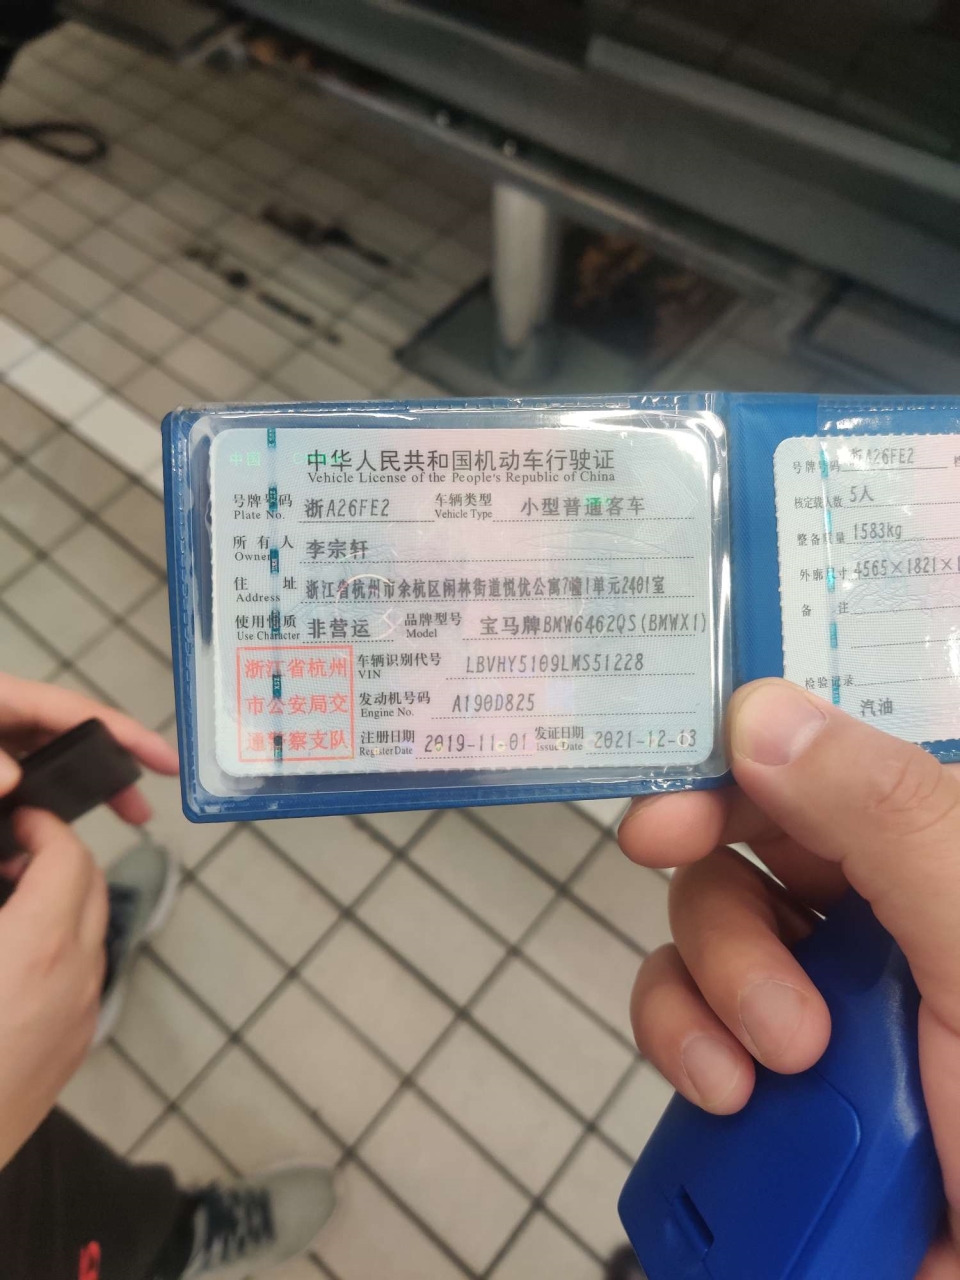 中国
中华人民共和国机动车行驶证
Vehicle License of the People's Republic of China
号牌号码 浙A26FE2 车辆类型 小型普通客车
Plate No. Vehicle Type
所有人 李宗轩
Owner
住址 浙江省杭州市余杭区闲林街道悦优公寓7幢1单元2401室
Address
使用性质 非营运 品牌型号 宝马牌BMW6462QS(BMWX1)
Use Character Model
浙江省杭州
市公安局交
通警察支队
车辆识别代号 LBVHY5109LMS51228
VIN
发动机号码 A190D825
Engine No.
注册日期 2019-11-01 发证日期 2021-12-03
Register Date Issue Date
号牌号码 浙A26FE2
核定载人数 5人
整备质量 1583kg
外廓尺寸 4565×1821×1
备注
检验记录
汽油